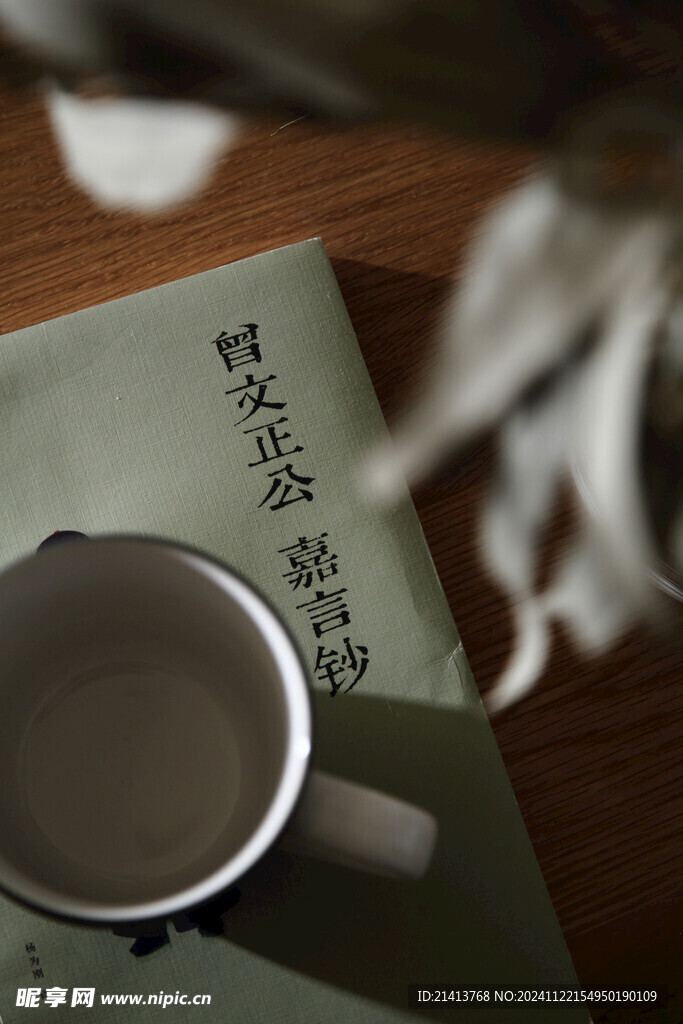 曾文正公 嘉言钞
杨为刚
昵享网 www.nipic.cn
ID:21413768 NO:20241122154950190109